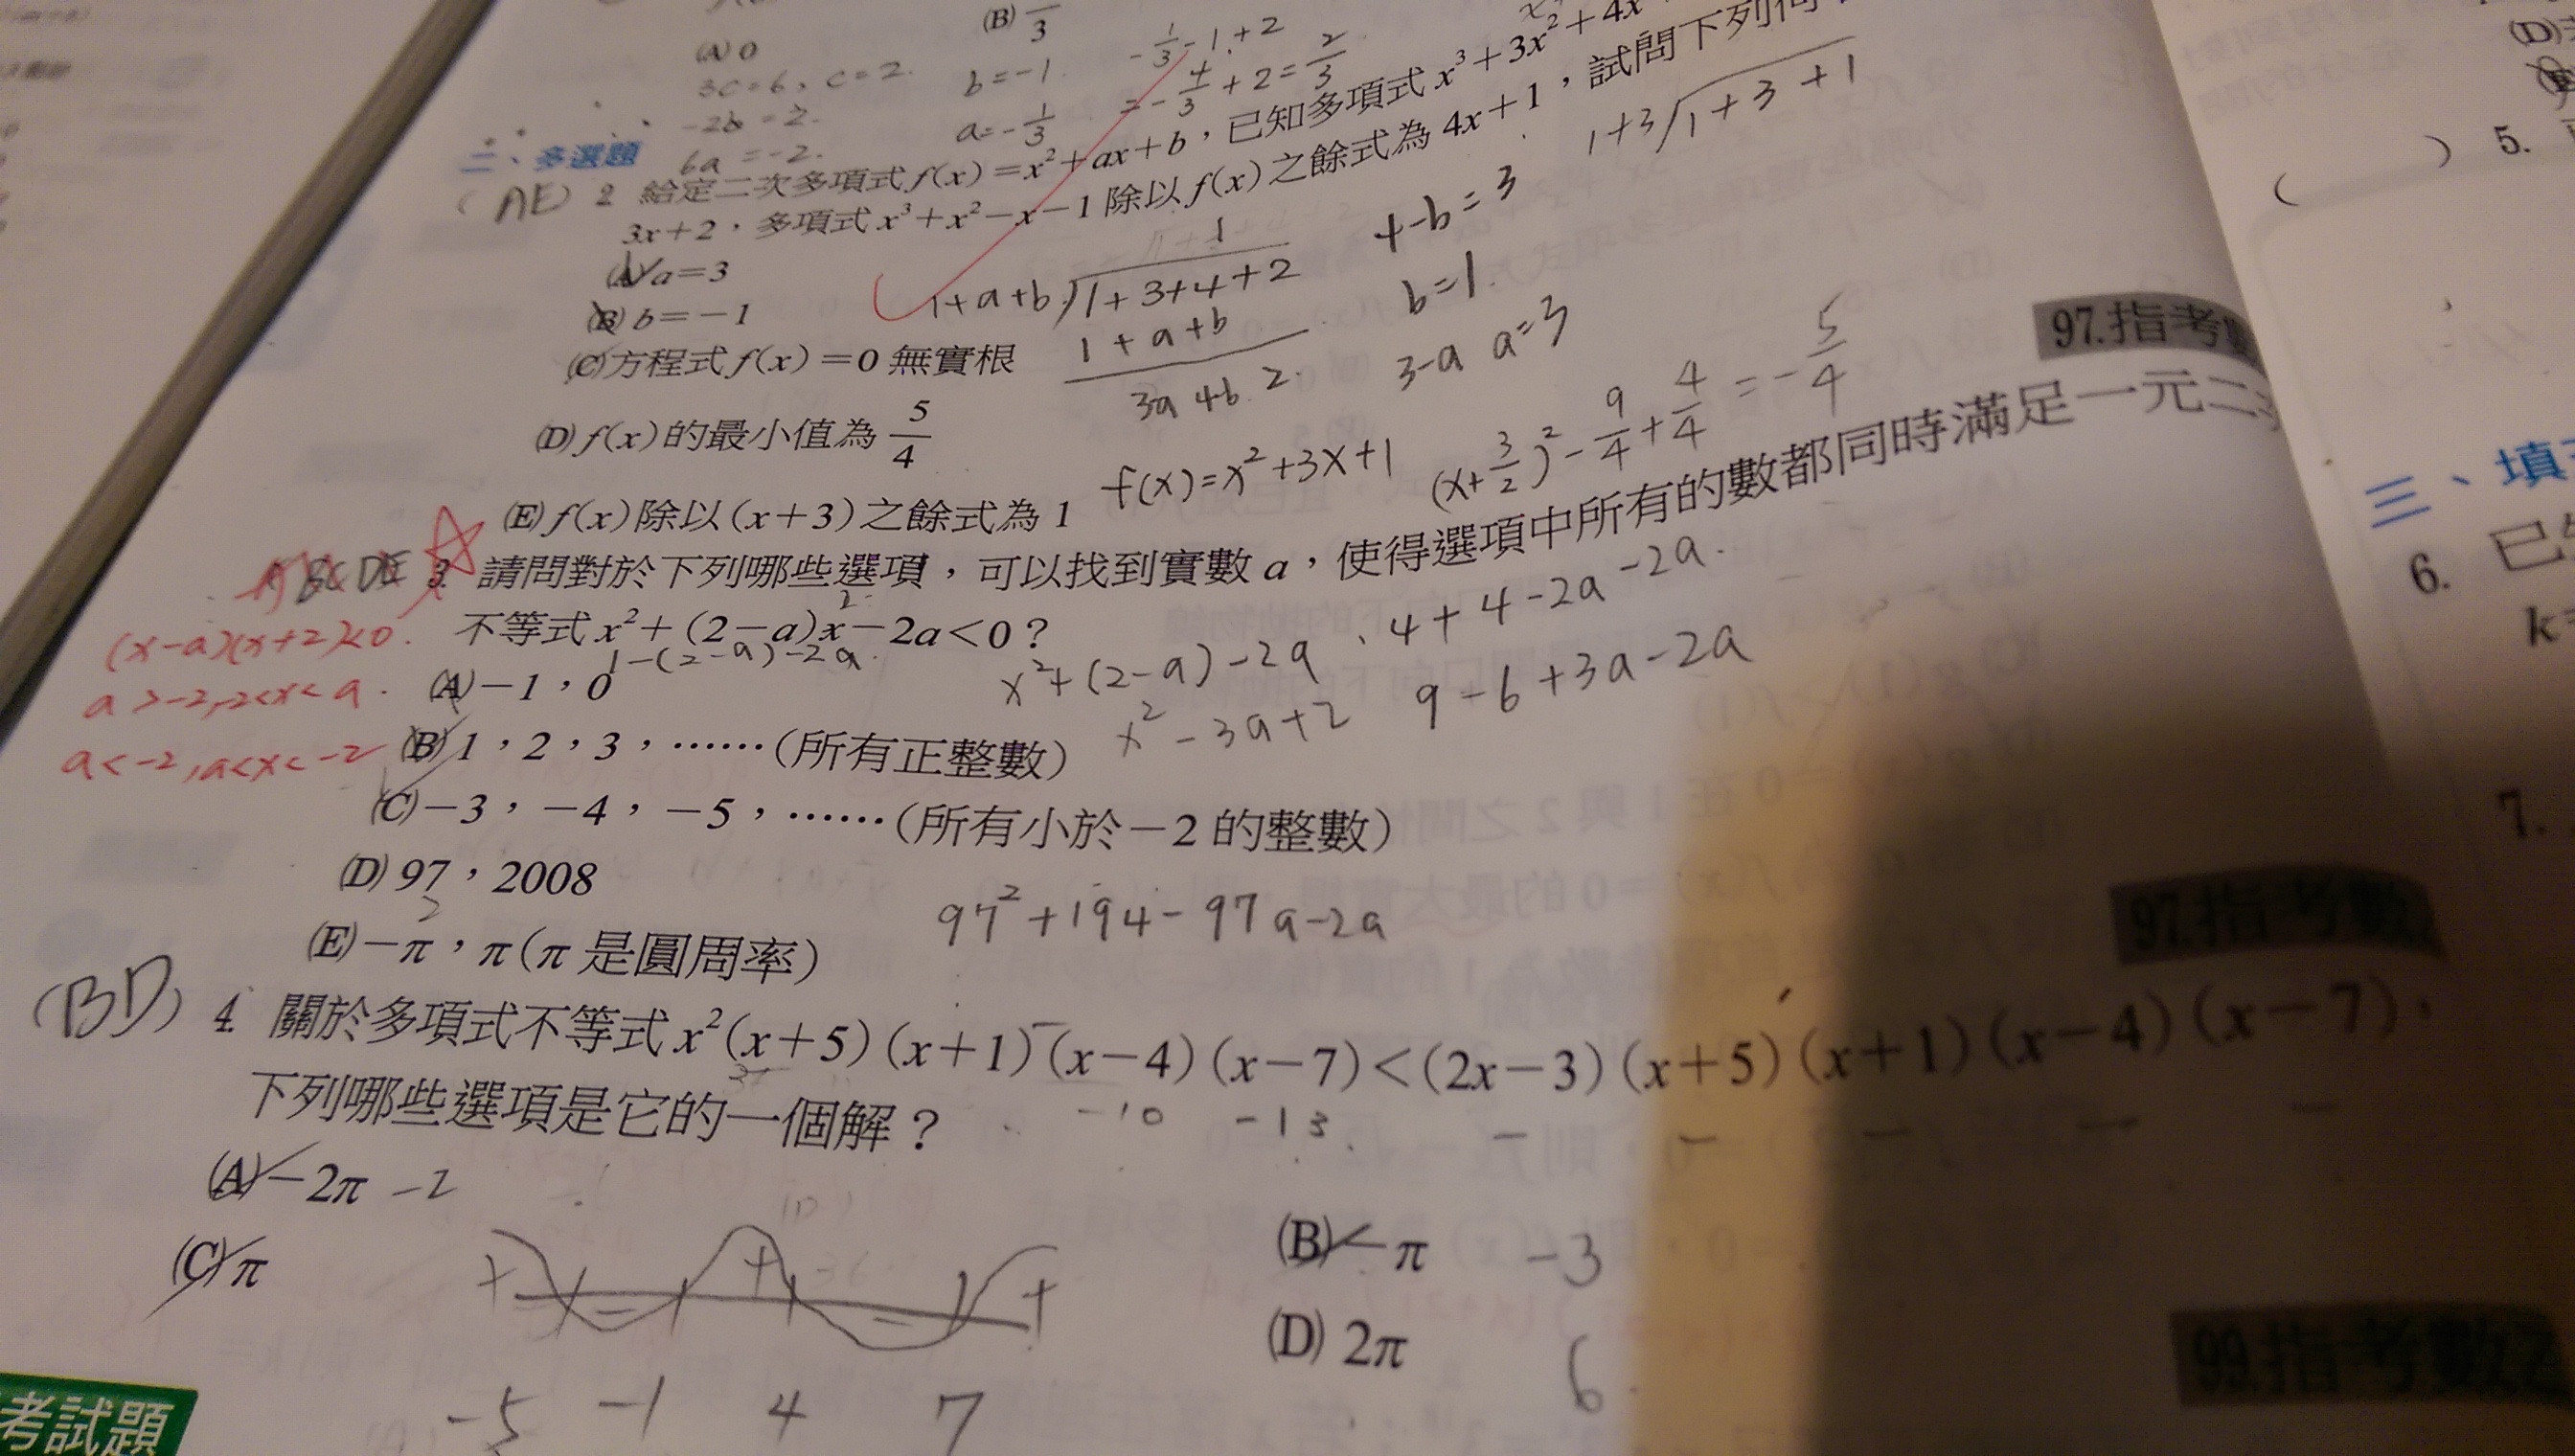 (A) 0
(B) 3
3c=6, c=2
b=-1
-1/3-1+2
-2b=2
a=-1/3
=-4/3+2=2/3
6a=-2
二、多選題
(AE) 2. 給定二次多項式 f(x)=x²+ax+b，已知多項式 x³+3x²+4x
3x+2，多項式 x³+x²-x-1 除以 f(x) 之餘式為 4x+1，試問下列何
(A) a=3
(B) b=-1
(C) 方程式 f(x)=0 無實根
(D) f(x) 的最小值為 5/4
(E) f(x) 除以 (x+3) 之餘式為 1
1+3 1+3+1
1
1+a+b 1+3+4+2
1+a+b
4-b=3
b=1
3-a a=3
f(x)=x²+3x+1
(x+3/2)²-9/4+4/4=-5/4
97.指考數
3. 請問對於下列哪些選項，可以找到實數 a，使得選項中所有的數都同時滿足一元二
不等式 x²+(2-a)x-2a<0？
(x-a)(x+2)<0
a>-2, -2<x<a
a<-2, a<x<-2
1-(2-a)-2a
x²+(2-a)-2a
4+4-2a-2a
x²-3a+2
9-6+3a-2a
(A) -1，0
(B) 1，2，3，……（所有正整數）
(C) -3，-4，-5，……（所有小於-2 的整數）
(D) 97，2008
97²+194-97a-2a
(E) -π，π（π 是圓周率）
97.指考數
(BD) 4. 關於多項式不等式 x²(x+5)(x+1)(x-4)(x-7)<(2x-3)(x+5)(x+1)(x-4)(x-7)，
下列哪些選項是它的一個解？
-10 -13
(A) -2π -2
(B) -π -3
(C) π
(D) 2π 6
+ - + - +
-5 -1 4 7
99.指考數乙
考試題
(D)
( ) 5.
三、填
6. 已
k=
7.